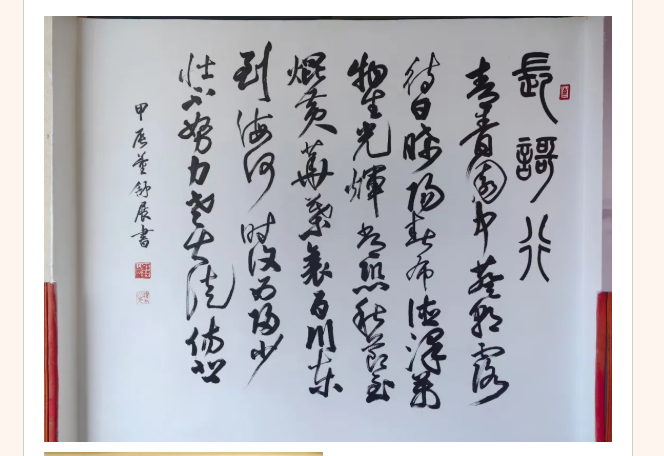 長謌行
青青園中葵朝露
待日晞陽春布德澤萬
物生光輝常恐秋節至
焜黃華葉衰百川東
到海何时復西歸少
壮不努力老大徒傷悲
甲辰董舒展書